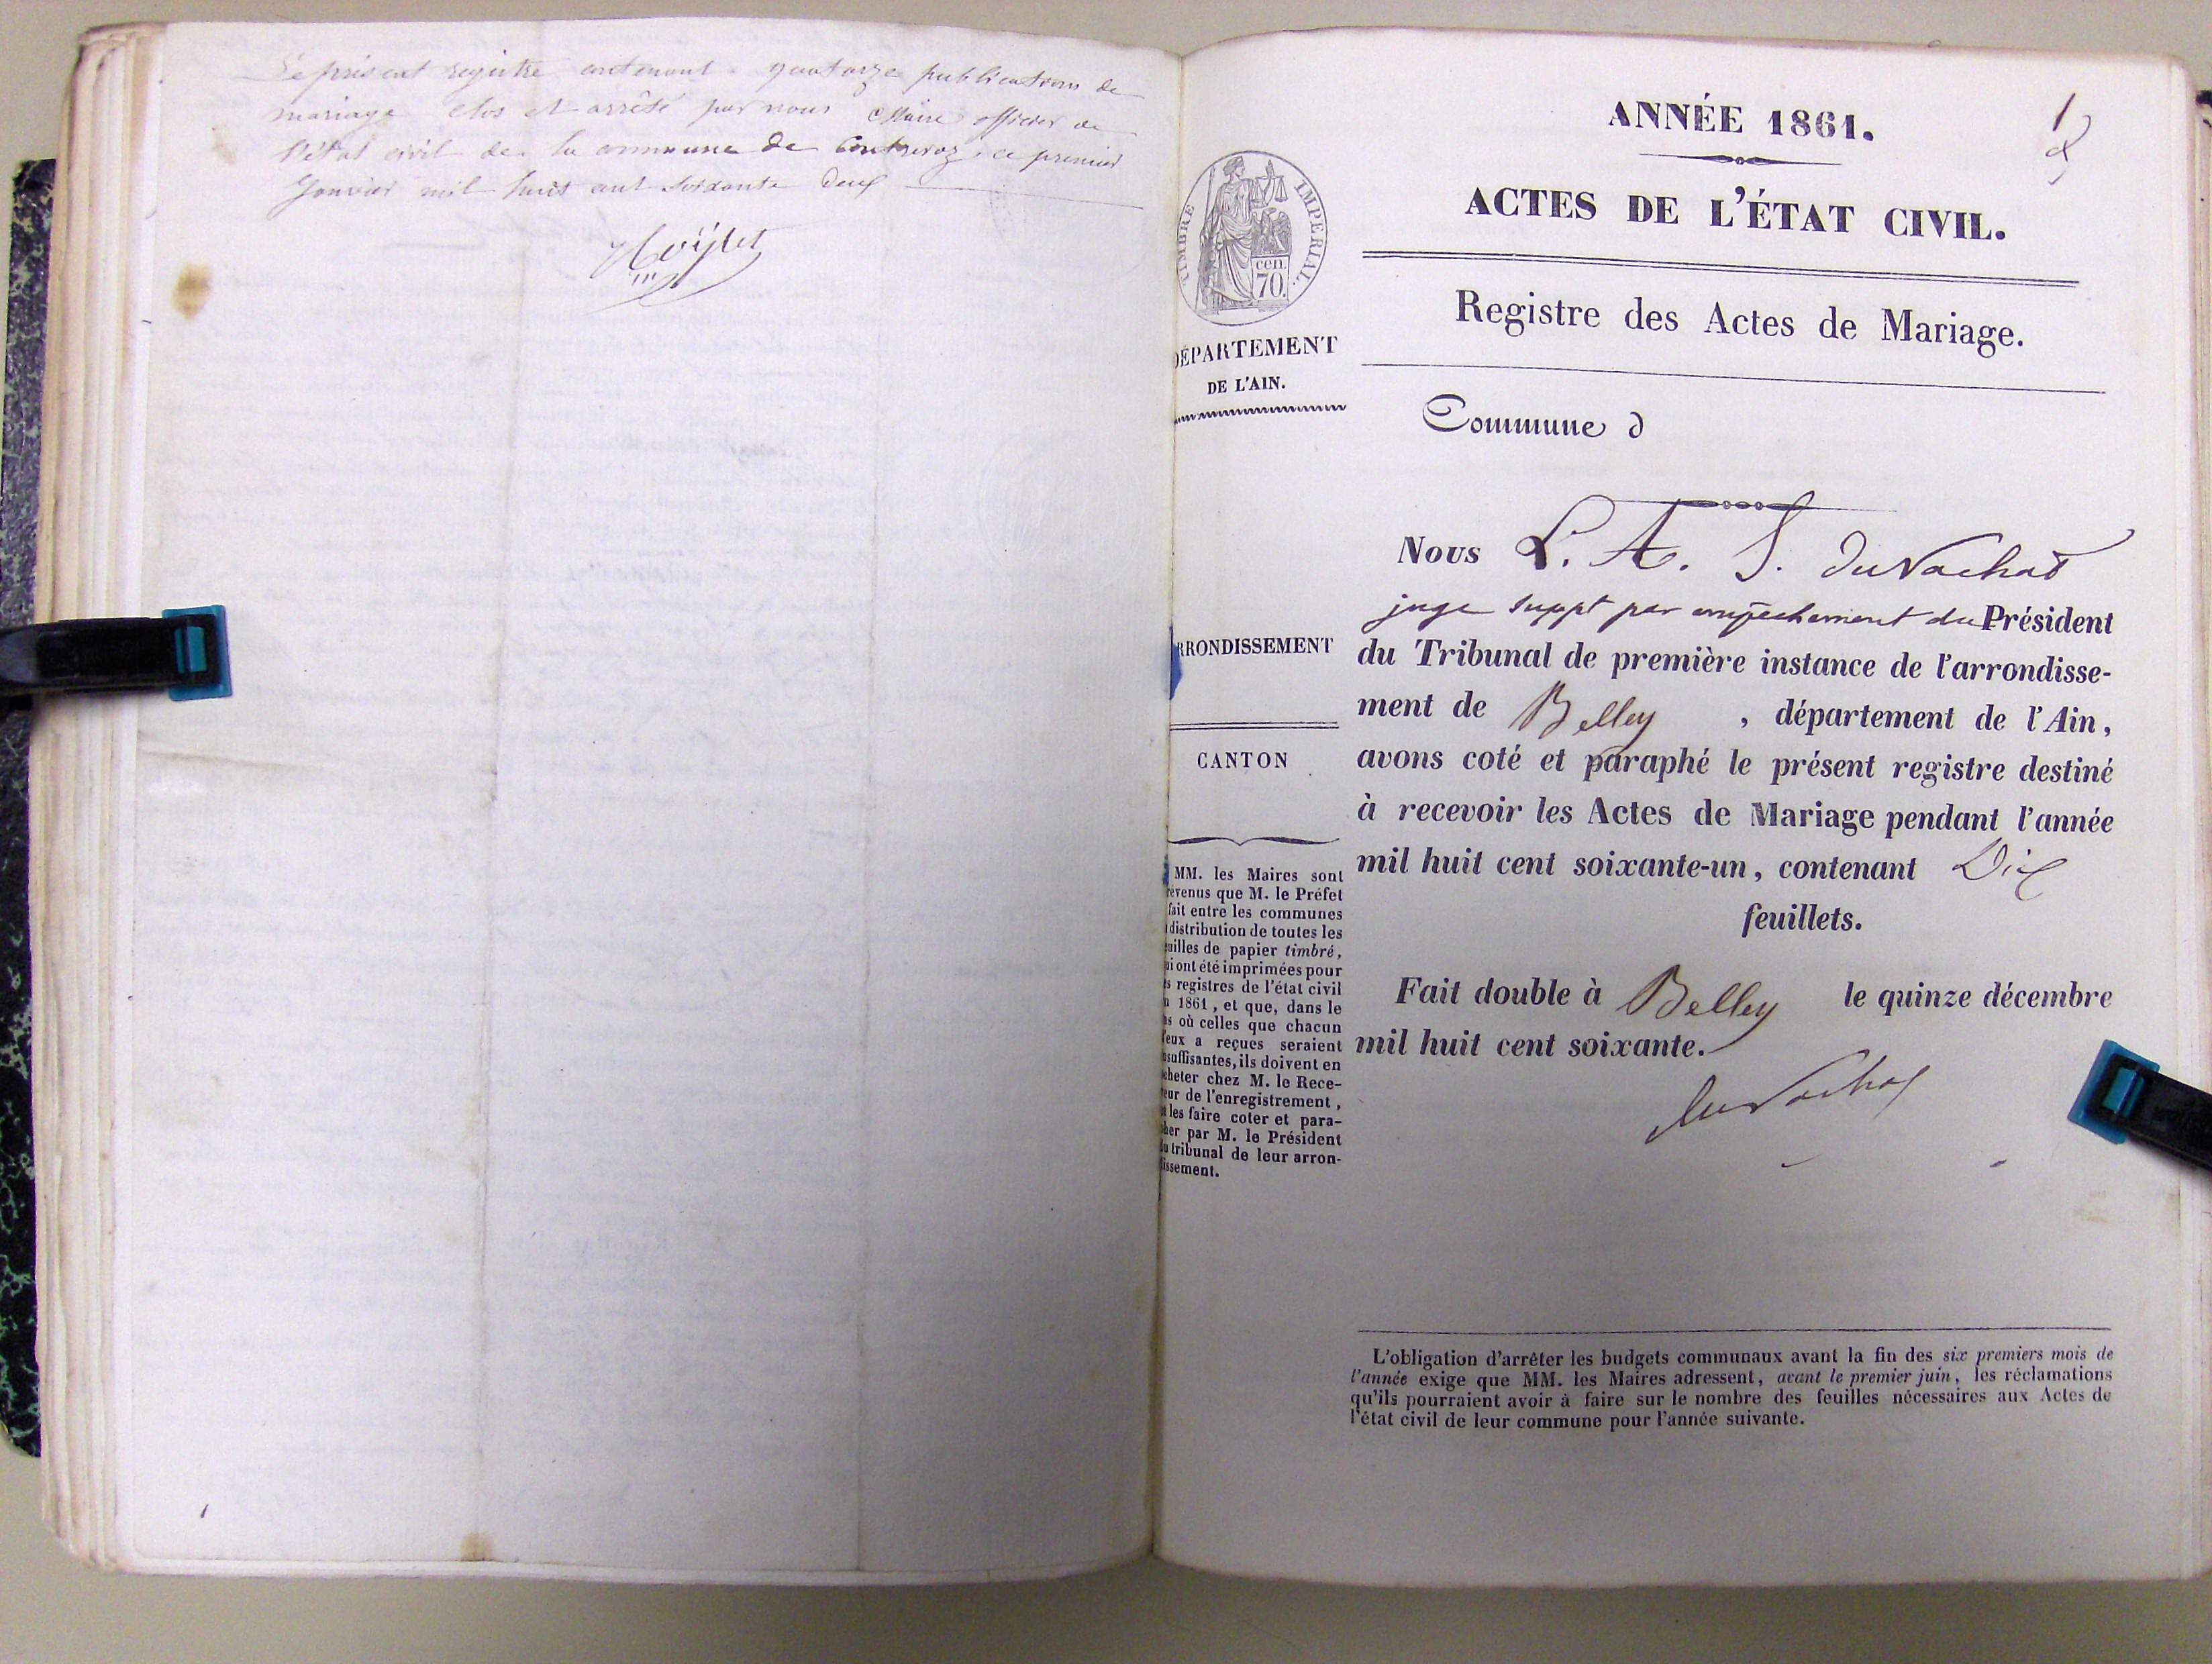 Le présent registre contenant quatorze publications de
mariage clos et arrêté par nous Maire officier de
l'état civil de la commune de Contrevoz, ce premier
Janvier mil huit cent soixante deux
ANNÉE 1861.
1
ACTES DE L'ÉTAT CIVIL.
TIMBRE IMPERIAL.
cen.
70.
Registre des Actes de Mariage.
DÉPARTEMENT
DE L'AIN.
Commune d
Nous L. A. S. DuVachat
juge suppt par empêchement du Président
du Tribunal de première instance de l'arrondisse-
ment de Belley , département de l'Ain,
avons coté et paraphé le présent registre destiné
à recevoir les Actes de Mariage pendant l'année
mil huit cent soixante-un, contenant Dix
feuillets.
Fait double à Belley le quinze décembre
mil huit cent soixante.
duVachat
RRONDISSEMENT
CANTON
MM. les Maires sont
révenus que M. le Préfet
fait entre les communes
distribution de toutes les
euilles de papier timbré,
ui ont été imprimées pour
es registres de l'état civil
n 1861, et que, dans le
as où celles que chacun
d'eux a reçues seraient
nsuffisantes, ils doivent en
cheter chez M. le Rece-
veur de l'enregistrement,
t les faire coter et para-
pher par M. le Président
du tribunal de leur arron-
dissement.
L'obligation d'arrêter les budgets communaux avant la fin des six premiers mois de
l'année exige que MM. les Maires adressent, avant le premier juin, les réclamations
qu'ils pourraient avoir à faire sur le nombre des feuilles nécessaires aux Actes de
l'état civil de leur commune pour l'année suivante.